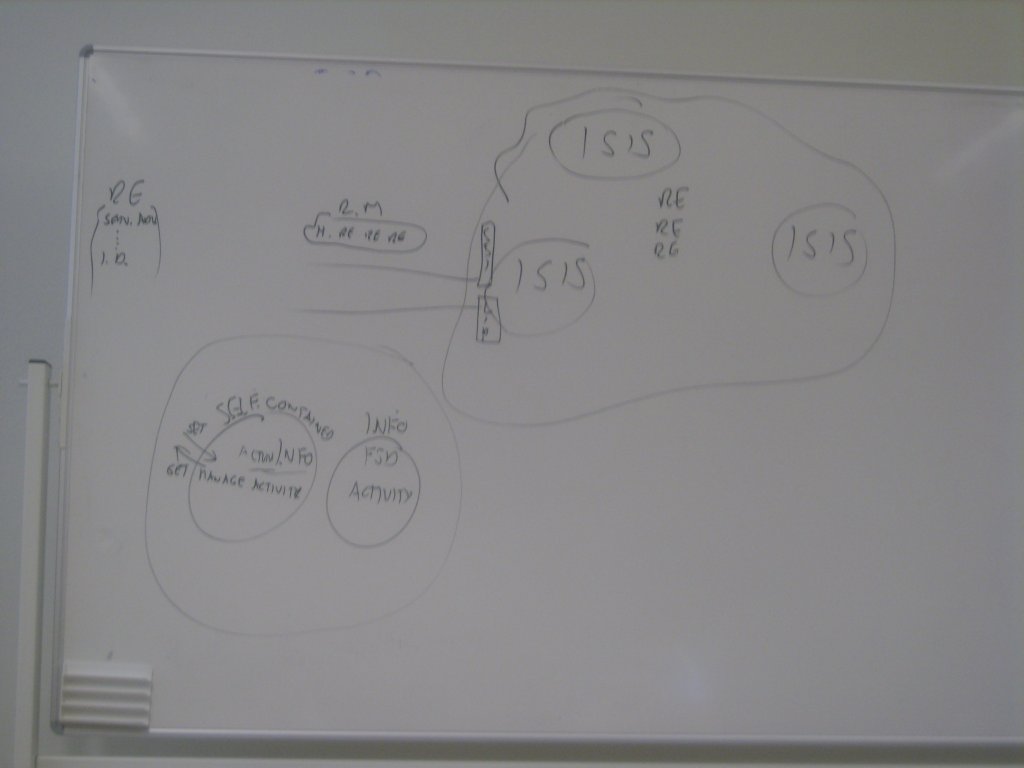 RE
SERV. ADV
I.R
R.M
M. RE RE RE
ISIS
RE
RE
RE
ISIS
ISIS
SELF. CONTAINED
SET
GET
ACTIV/INFO
MANAGE ACTIVITY
INFO
FSD
ACTIVITY